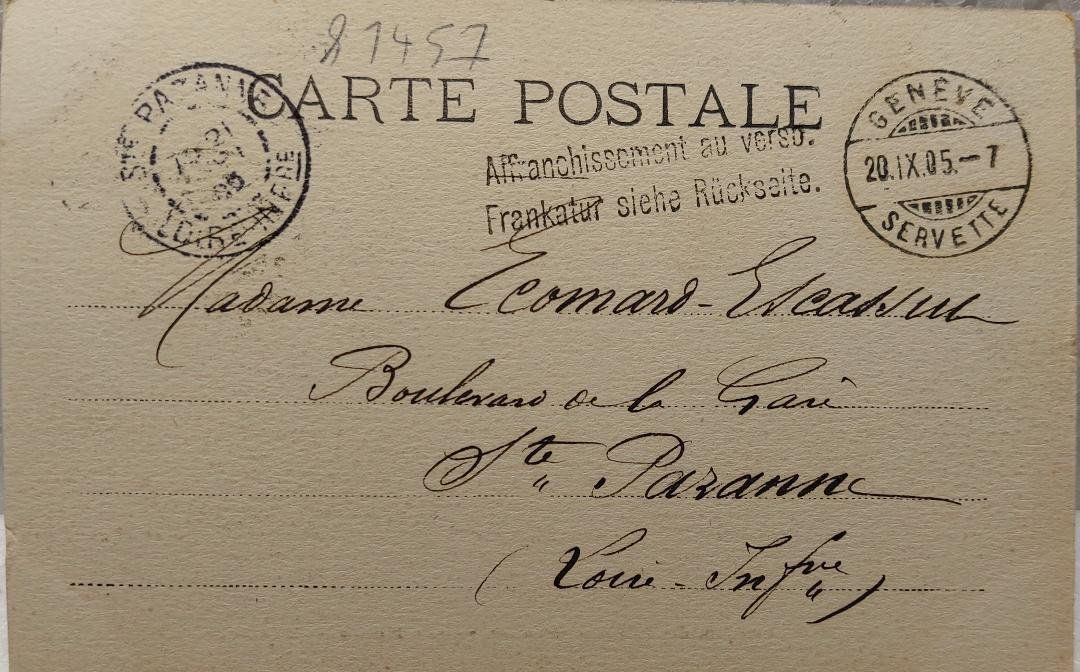 81457
CARTE POSTALE
STE PAZANNE
21
05
LOIRE-INFRE
Affranchissement au verso.
Frankatur siehe Rückseite.
GENÈVE
20.IX.05.-7
SERVETTE
Madame Ecomard-Escassut
Boulevard de la Gare
Ste Pazanne
(Loire-Infre)